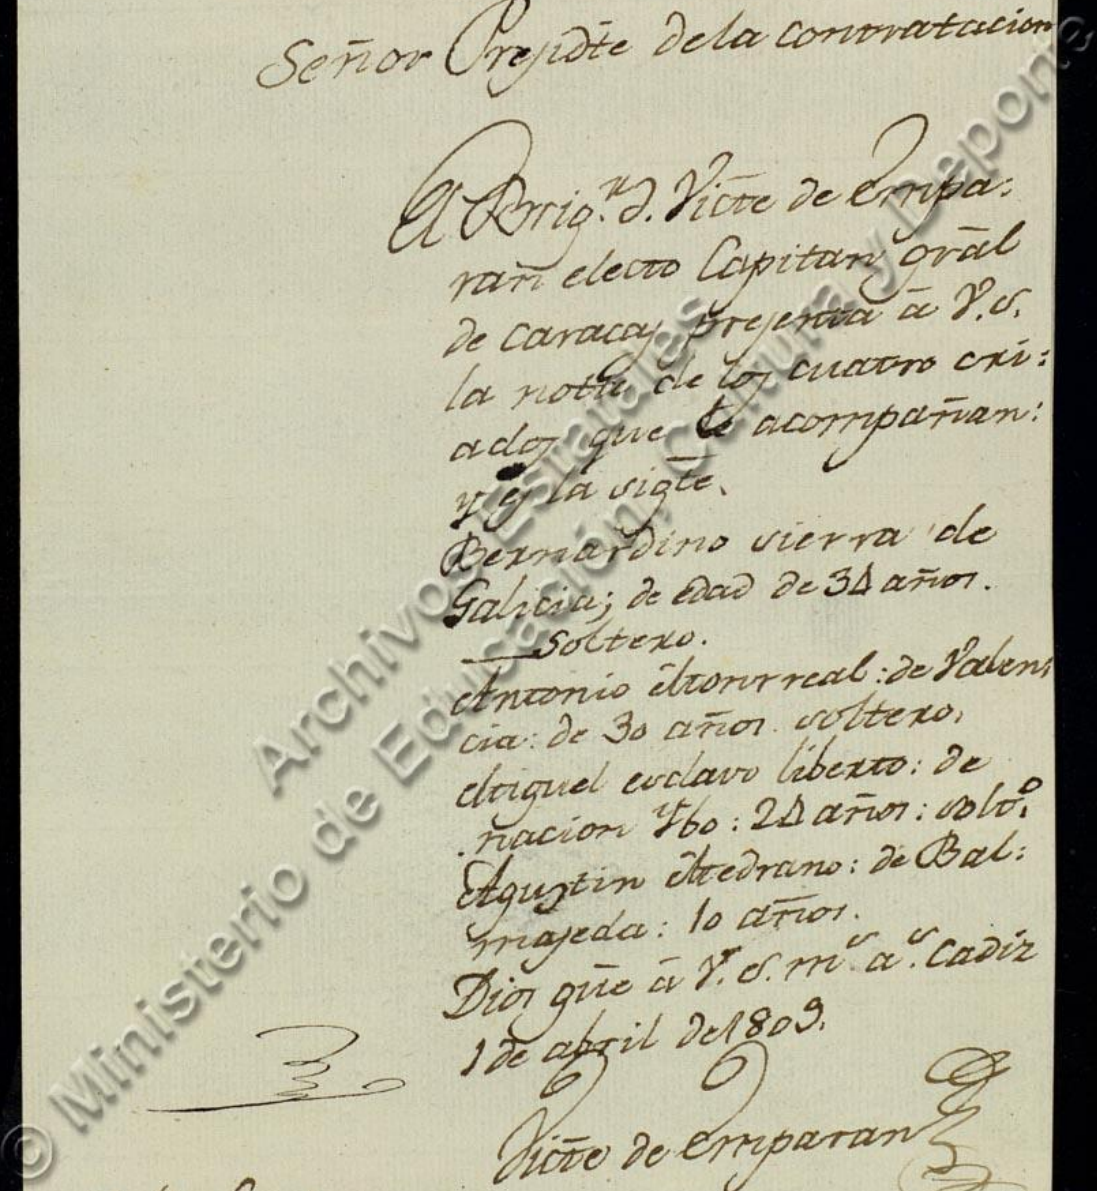 Señor Presidte dela contratacion
El Brigr. d. Victe de Empa=
ran electo Capitan gral
de Caracas presenta à V. S.
la notta de los cuatro cri=
ados que le acompañan:
y es la sigte.
Bernardino sierra de
Galicia; de edad de 34 años.
soltero.
Antonio Monrreal: de Valen
cia: de 30 años soltero,
Miguel esclavo liberto: de
nacion Ybo: 24 años: solto.
Agustin Medrano: de Bal=
maseda: 10 años.
Dios gue à V. S. ms. as. Cadiz
1 de abril de 1809.
Victe de Emparan
© Ministerio de Educación, Cultura y Deporte
Archivos Estatales